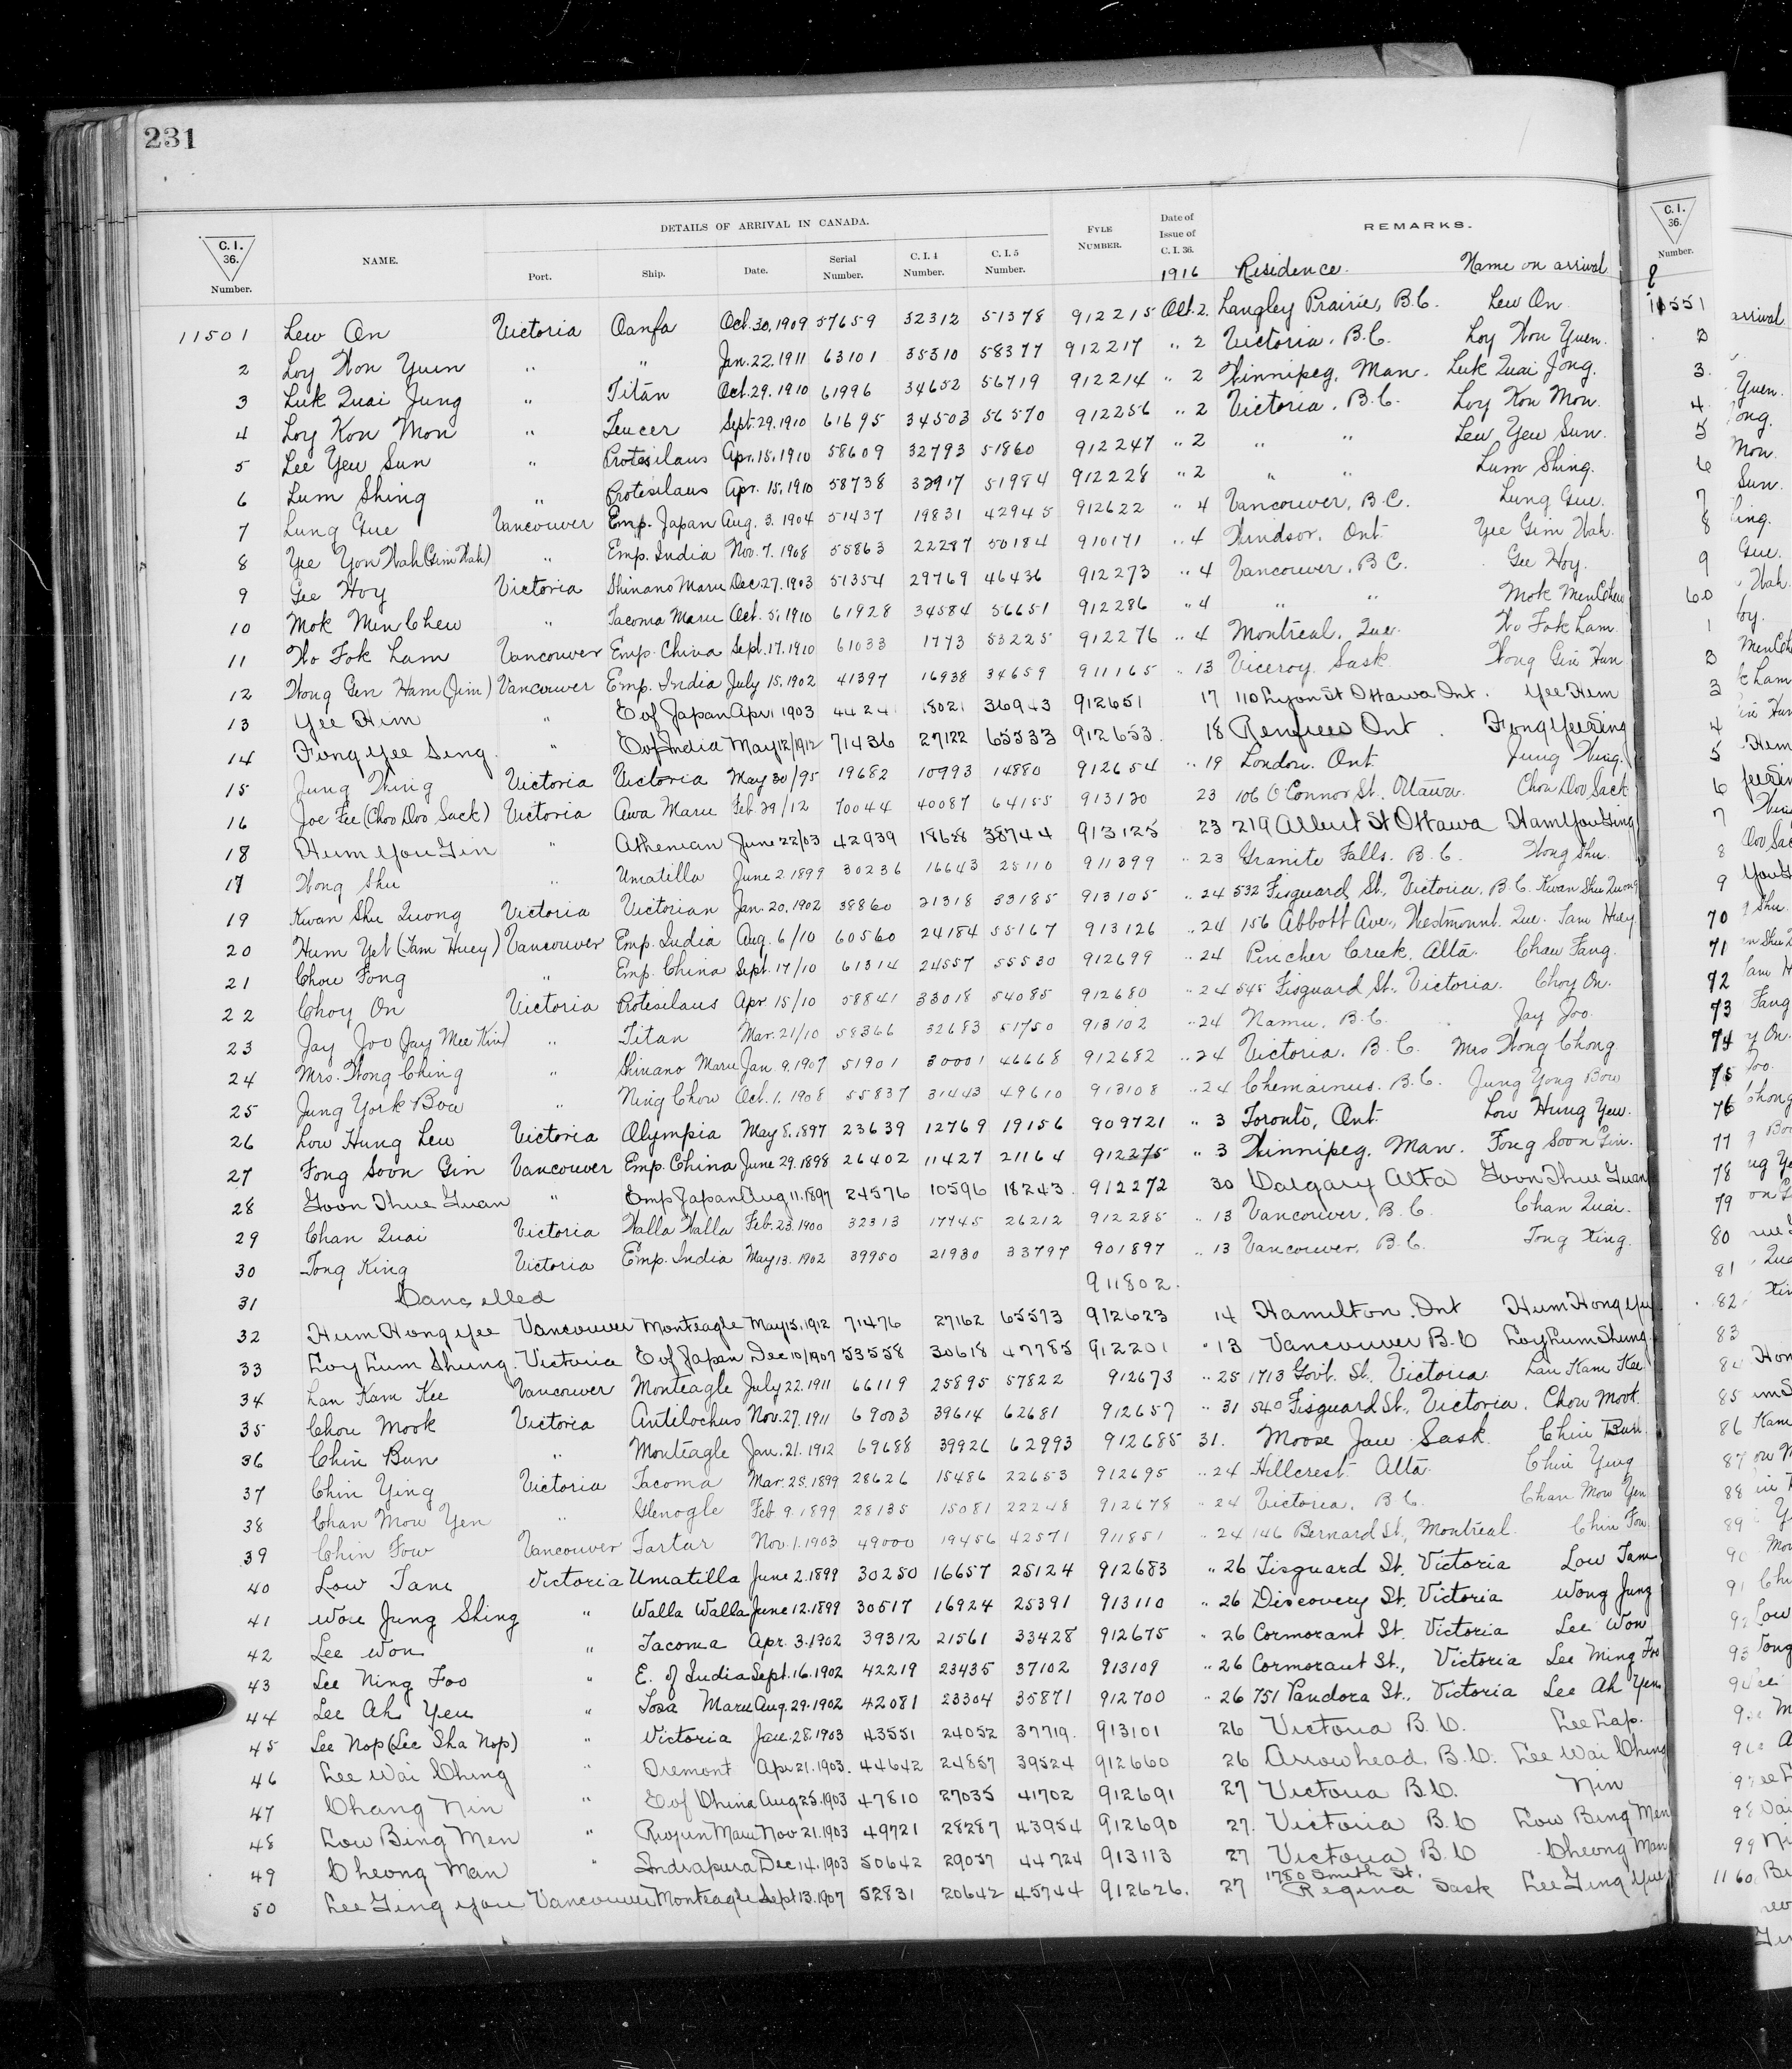 231
C. I. 36. Number. NAME. DETAILS OF ARRIVAL IN CANADA. Port. Ship. Date. Serial Number. C. I. 4 Number. C. I. 5 Number. FYLE NUMBER. Date of Issue of C. I. 36. REMARKS.
1916 Residence. Name on arrival
11501 Lew On Victoria Oanfa Oct. 30, 1909 57659 32312 51378 912215 Oct. 2. Langley Prairie, B.C. Lew On
2 Loy Won Yuen " " Jan. 22. 1911 63101 35310 58377 912217 " 2 Victoria, B.C. Loy Won Yuen.
3 Luk Quai Jung " Titan Oct. 29. 1910 61996 34652 56719 912214 " 2 Winnipeg, Man. Luk Quai Jong.
4 Loy Kon Mon " Teucer Sept. 29. 1910 61695 34503 56570 912256 " 2 Victoria, B.C. Loy Kon Mon.
5 Lee Yew Sun " Protesilaus Apr. 15. 1910 58609 32793 51860 912247 " 2 " " Lew Yew Sun.
6 Lum Shing " Protesilaus Apr. 15. 1910 58738 32917 51984 912228 " 2 " " Lum Shing.
7 Lung Gue Vancouver Emp. Japan Aug. 3. 1904 51437 19831 42945 912622 " 4 Vancouver, B.C. Lung Gue.
8 Yee Yon Wah (Gim Wah) " Emp. India Nov. 7. 1908 55863 22287 50184 910171 " 4 Windsor, Ont. Yee Gim Wah.
9 Gee Hoy Victoria Shinano Maru Dec. 27. 1903 51354 29769 46436 912273 " 4 Vancouver, B.C. Gee Hoy.
10 Mok Men Chew " Tacoma Maru Oct. 5, 1910 61928 34584 56651 912286 " 4 " " Mok Men Chew
11 Wo Fok Lam Vancouver Emp. China Sept. 17. 1910 61033 1773 53225 912276 " 4 Montreal, Que. Wo Fok Lam.
12 Wong Gen Ham (Jim) Vancouver Emp. India July 15. 1902 41397 16938 34659 911165 " 13 Viceroy, Sask. Wong Gin Han
13 Yee Him " E of Japan Apr 1 1903 4424 18021 36943 912651 17 110 Lyon St Ottawa Ont. Yee Hem
14 Fong Yee Sing. " E of India May 12/1912 71436 27122 65533 912653. 18 Renfrew Ont. Fong Yee Sing
15 Jung Wing Victoria Victoria May 30/95 19682 10993 14880 912654 " 19 London. Ont. Jung Wing.
16 Joe Fee (Choo Doo Sack) Victoria Awa Maru Feb 29/12 70044 40087 64155 913120 23 106 O'Connor St., Ottawa. Chou Doo Sack
18 Hum You Gin " Athenian June 22/03 42939 18628 38744 913125 23 219 Albert St Ottawa Ham You Ging
17 Wong Shu " Umatilla June 2. 1899 30236 16643 25110 911399 " 23 Granite Falls. B.C. Wong Shu.
19 Kwan Shu Quong Victoria Victorian Jan. 20. 1902 38860 21318 33185 913105 " 24 532 Fisguard St, Victoria, B.C. Kwan Shu Quong
20 Hum Yet (Tam Huey) Vancouver Emp. India Aug. 6/10 60560 24184 55167 913126 " 24 156 Abbott Ave., Westmount. Que. Tam Huey
21 Chou Fong " Emp. China Sept. 17/10 61314 24557 55530 912699 " 24 Pincher Creek, Alta. Chau Fang.
22 Choy On Victoria Protesilaus Apr. 15/10 58841 33018 54085 912680 " 24 545 Fisguard St., Victoria. Choy On.
23 Jay Joo (Jay Mee King) " Titan Mar. 21/10 58366 32683 51750 913102 " 24 Namu, B.C. Jay Joo.
24 Mrs. Wong Ching " Shinano Maru Jan. 9. 1907 51901 30001 46668 912682 " 24 Victoria, B.C. Mrs Wong Chong.
25 Jung York Bow " Ning Chow Oct. 1. 1908 55837 31443 49610 913108 " 24 Chemainus. B.C. Jung Yong Bow
26 Low Hung Lew Victoria Olympia May 8. 1897 23639 12769 19156 909721 " 3 Toronto, Ont. Low Hung Yew.
27 Fong Soon Gin Vancouver Emp. China June 29. 1898 26402 11427 21164 912275 " 3 Winnipeg. Man. Fong Soon Gin.
28 Goon Thue Guan " Emp Japan Aug 11. 1897 24576 10596 18243 912272 30 Calgary Alta Goon Thue Guan
29 Chan Quai Victoria Walla Walla Feb. 23. 1900 32313 17745 26212 912285 " 13 Vancouver, B.C. Chan Quai.
30 Tong King Victoria Emp. India May 13. 1902 39950 21930 33797 901897 " 13 Vancouver, B.C. Tong King.
31 Cancelled 911802.
32 Hum Hong Yee Vancouver Monteagle May 15. 1912 71476 27162 65573 912623 14 Hamilton. Ont Hum Hong Yee
33 Loy Lum Shung. Victoria E of Japan Dec 10/1907 53558 30618 47785 912201 " 13 Vancouver B.C Loy Lum Shung
34 Lan Kam Kee Vancouver Monteagle July 22. 1911 66119 25895 57822 912673 " 25 1713 Govt. St., Victoria Lau Kam Kee
35 Chou Mook Victoria Antilochus Nov. 27. 1911 69003 39614 62681 912657 " 31 540 Fisguard St., Victoria. Chow Mook.
36 Chin Bun " Monteagle Jan. 21. 1912 69688 39926 62993 912685 31. Moose Jaw Sask. Chin Bun.
37 Chin Ying Victoria Tacoma Mar. 25. 1899 28626 15486 22653 912695 " 24 Hillcrest Alta. Chin Ying
38 Chan Mow Yen " Glenogle Feb. 9. 1899 28135 15081 22248 912678 " 24 Victoria, B.C. Chan Mow Yen
39 Chin Fow Vancouver Tartar Nov. 1. 1903 49000 19456 42571 911851 " 24 146 Bernard St., Montreal. Chin Fow
40 Low Tam Victoria Umatilla June 2. 1899 30250 16657 25124 912683 " 26 Fisguard St. Victoria Low Tam
41 Wou Jung Shing " Walla Walla June 12. 1899 30517 16924 25391 913110 " 26 Discovery St. Victoria Wong Jung
42 Lee Won " Tacoma Apr. 3. 1902 39312 21561 33428 912675 " 26 Cormorant St. Victoria Lee Won
43 Lee Ning Foo " E. of India Sept. 16. 1902 42219 23435 37102 913109 " 26 Cormorant St., Victoria Lee Ming Foo
44 Lee Ah Yen " Tosa Maru Aug. 29. 1902 42081 23304 35871 912700 " 26 751 Pandora St., Victoria Lee Ah Yen
45 Lee Nop (Lee Sha Nop) " Victoria Jan. 28. 1903 43551 24052 37719. 913101 26 Victoria B.C. Lee Lap.
46 Lee Wai Ching " Oremont Apr 21. 1903. 44642 24857 39524 912660 26 Arrowhead, B.C. Lee Wai Ching
47 Chang Nin " E of China Aug 25. 1903 47810 27035 41702 912691 27 Victoria B.C. Nin
48 Low Bing Men " Riojun Maru Nov 21. 1903 49721 28287 43954 912690 27. Victoria B.C Low Bing Men
49 Cheong Man " Indrapura Dec 14. 1903 50642 29057 44724 913113 27 Victoria B.C Cheong Man
50 Lee Ging You Vancouver Monteagle Sept 13. 1907 52831 20642 45744 912626. 27 1780 Smith St. Regina Sask Lee Ging Yue
C. I. 36. Number.
11551